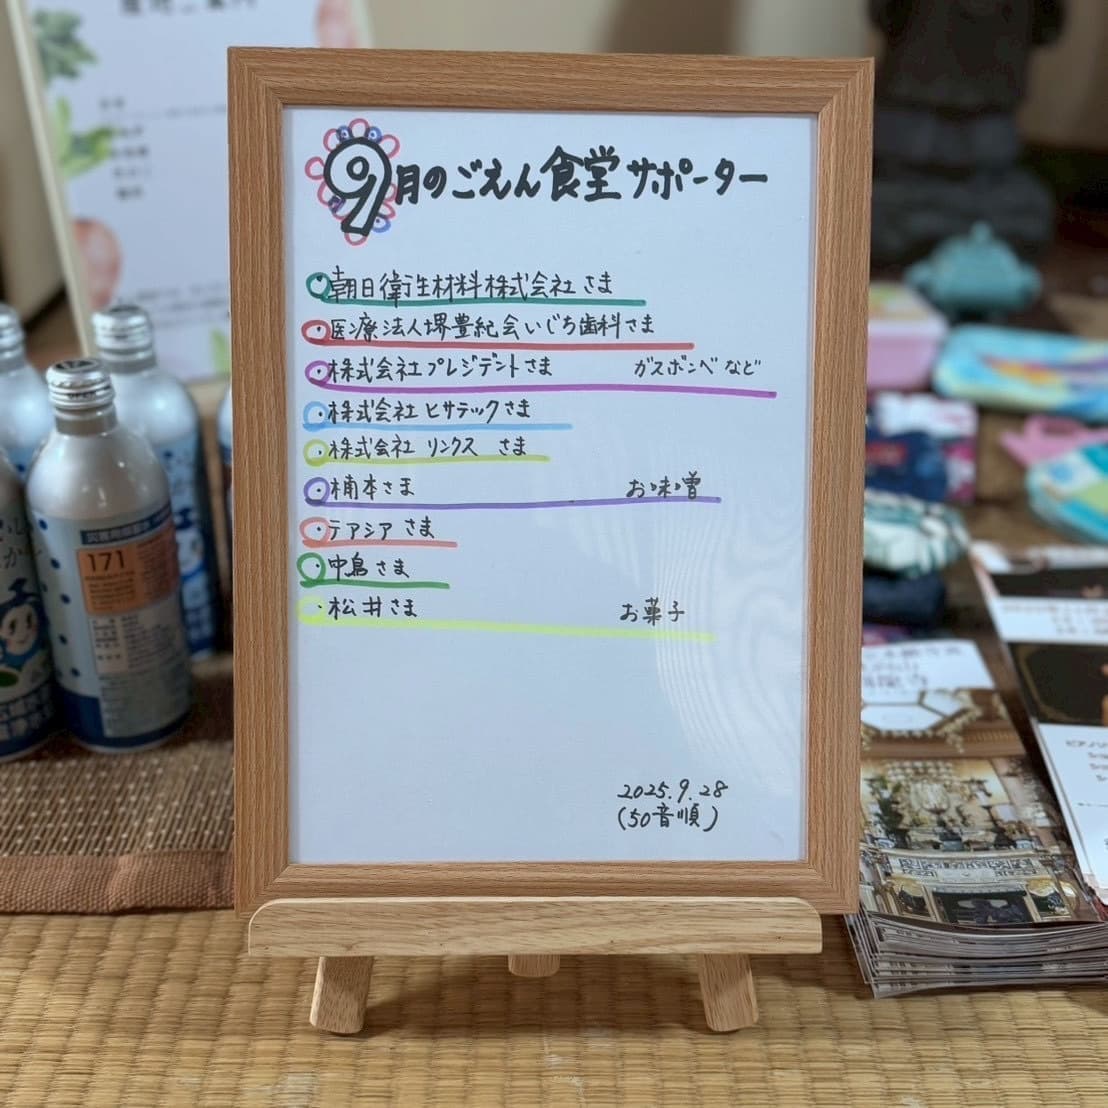 9月のごえん食堂サポーター
・朝日衛生材料株式会社さま
・医療法人堺豊紀会いじち歯科さま
・株式会社プレジデントさま ガスボンベなど
・株式会社ヒサテックさま
・株式会社リンクス さま
・楠本さま お味噌
・テアシアさま
・中島さま
・松井さま お菓子
2025.9.28
(50音順)
171